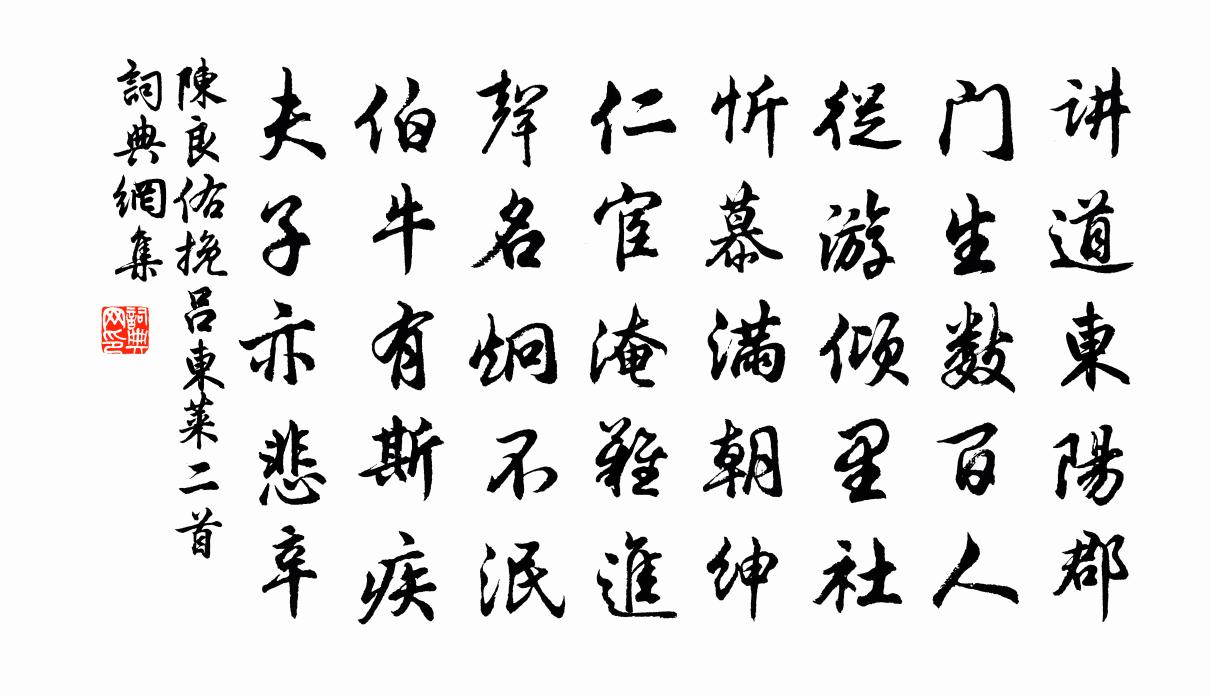 讲道東陽郡
门生数百人
從游倾里社
忻慕满朝紳
仁宦淹難進
聲名炯不泯
伯牛有斯疾
夫子亦悲辛
陳良佑挽吕東萊二首
詞典網集
詞典
网印